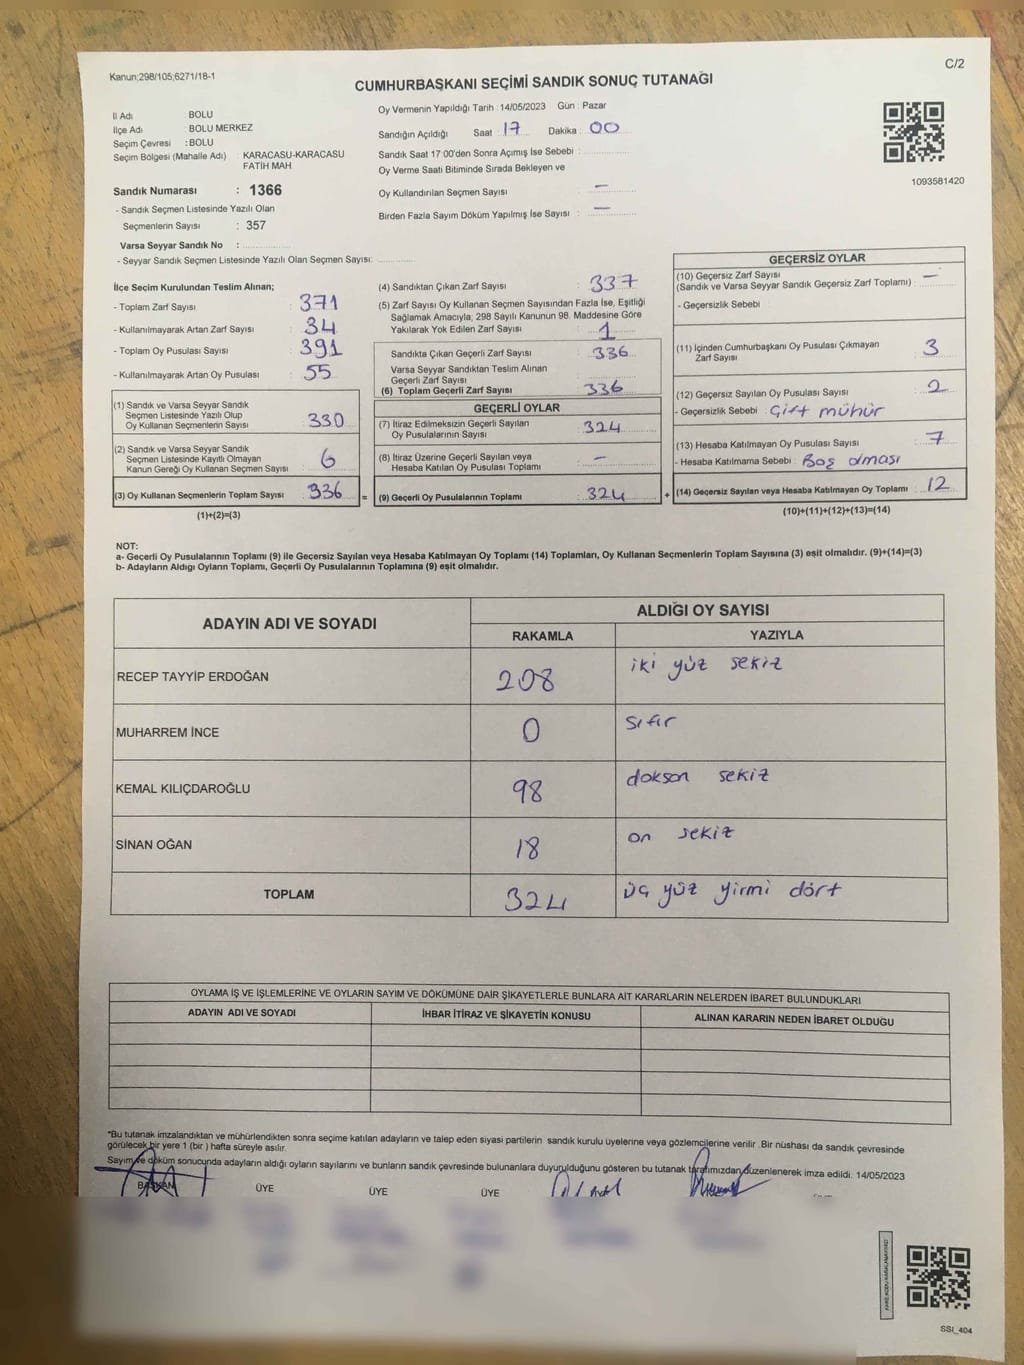 Kanun;298/105;6271/18-1
C/2
CUMHURBAŞKANI SEÇİMİ SANDIK SONUÇ TUTANAĞI
İl Adı BOLU
İlçe Adı : BOLU MERKEZ
Seçim Çevresi : BOLU
Seçim Bölgesi (Mahalle Adı) KARACASU-KARACASU
FATİH MAH
Sandık Numarası : 1366
- Sandık Seçmen Listesinde Yazılı Olan
Seçmenlerin Sayısı : 357
Varsa Seyyar Sandık No :
- Seyyar Sandık Seçmen Listesinde Yazılı Olan Seçmen Sayısı:
Oy Vermenin Yapıldığı Tarih : 14/05/2023 Gün : Pazar
Sandığın Açıldığı Saat : 17 Dakika : 00
Sandık Saat 17:00'den Sonra Açımış İse Sebebi :
Oy Verme Saati Bitiminde Sırada Bekleyen ve
Oy Kullandırılan Seçmen Sayısı : —
Birden Fazla Sayım Döküm Yapılmış İse Sayısı : —
1093581420
İlçe Seçim Kurulundan Teslim Alınan;
- Toplam Zarf Sayısı : 371
- Kullanılmayarak Artan Zarf Sayısı : 34
- Toplam Oy Pusulası Sayısı : 391
- Kullanılmayarak Artan Oy Pusulası : 55
(1) Sandık ve Varsa Seyyar Sandık
Seçmen Listesinde Yazılı Olup
Oy Kullanan Seçmenlerin Sayısı : 330
(2) Sandık ve Varsa Seyyar Sandık
Seçmen Listesinde Kayıtlı Olmayan
Kanun Gereği Oy Kullanan Seçmen Sayısı : 6
(3) Oy Kullanan Seçmenlerin Toplam Sayısı : 336 =
(1)+(2)=(3)
(4) Sandıktan Çıkan Zarf Sayısı : 337
(5) Zarf Sayısı Oy Kullanan Seçmen Sayısından Fazla İse, Eşitliği
Sağlamak Amacıyla; 298 Sayılı Kanunun 98. Maddesine Göre
Yakılarak Yok Edilen Zarf Sayısı : 1
Sandıkta Çıkan Geçerli Zarf Sayısı : 336
Varsa Seyyar Sandıktan Teslim Alınan
Geçerli Zarf Sayısı
(6) Toplam Geçerli Zarf Sayısı : 336
GEÇERLİ OYLAR
(7) İtiraz Edilmeksizin Geçerli Sayılan
Oy Pusulalarının Sayısı : 324
(8) İtiraz Üzerine Geçerli Sayılan veya
Hesaba Katılan Oy Pusulası Toplamı : —
(9) Geçerli Oy Pusulalarının Toplamı : 324 +
GEÇERSİZ OYLAR
(10) Geçersiz Zarf Sayısı
(Sandık ve Varsa Seyyar Sandık Geçersiz Zarf Toplamı) : —
- Geçersizlik Sebebi :
(11) İçinden Cumhurbaşkanı Oy Pusulası Çıkmayan
Zarf Sayısı : 3
(12) Geçersiz Sayılan Oy Pusulası Sayısı : 2
- Geçersizlik Sebebi : Çift mühür
(13) Hesaba Katılmayan Oy Pusulası Sayısı : 7
- Hesaba Katılmama Sebebi : Boş olması
(14) Geçersiz Sayılan veya Hesaba Katılmayan Oy Toplamı : 12
(10)+(11)+(12)+(13)=(14)
NOT:
a- Geçerli Oy Pusulalarının Toplamı (9) ile Geçersiz Sayılan veya Hesaba Katılmayan Oy Toplamı (14) Toplamları, Oy Kullanan Seçmenlerin Toplam Sayısına (3) eşit olmalıdır. (9)+(14)=(3)
b- Adayların Aldığı Oyların Toplamı, Geçerli Oy Pusulalarının Toplamına (9) eşit olmalıdır.
ADAYIN ADI VE SOYADI ALDIĞI OY SAYISI
RAKAMLA YAZIYLA
RECEP TAYYİP ERDOĞAN 208 iki yüz sekiz
MUHARREM İNCE 0 sıfır
KEMAL KILIÇDAROĞLU 98 doksan sekiz
SİNAN OĞAN 18 on sekiz
TOPLAM 324 üç yüz yirmi dört
OYLAMA İŞ VE İŞLEMLERİNE VE OYLARIN SAYIM VE DÖKÜMÜNE DAİR ŞİKAYETLERLE BUNLARA AİT KARARLARIN NELERDEN İBARET BULUNDUKLARI
ADAYIN ADI VE SOYADI İHBAR İTİRAZ VE ŞİKAYETİN KONUSU ALINAN KARARIN NEDEN İBARET OLDUĞU
*Bu tutanak imzalandıktan ve mühürlendikten sonra seçime katılan adayların ve talep eden siyasi partilerin sandık kurulu üyelerine veya gözlemcilerine verilir .Bir nüshası da sandık çevresinde
görülecek bir yere 1 (bir ) hafta süreyle asılır.
Sayım ve döküm sonucunda adayların aldığı oyların sayılarını ve bunların sandık çevresinde bulunanlara duyurulduğunu gösteren bu tutanak tarafımızdan düzenlenerek imza edildi. 14/05/2023
BAŞKAN ÜYE ÜYE ÜYE
SSI_404